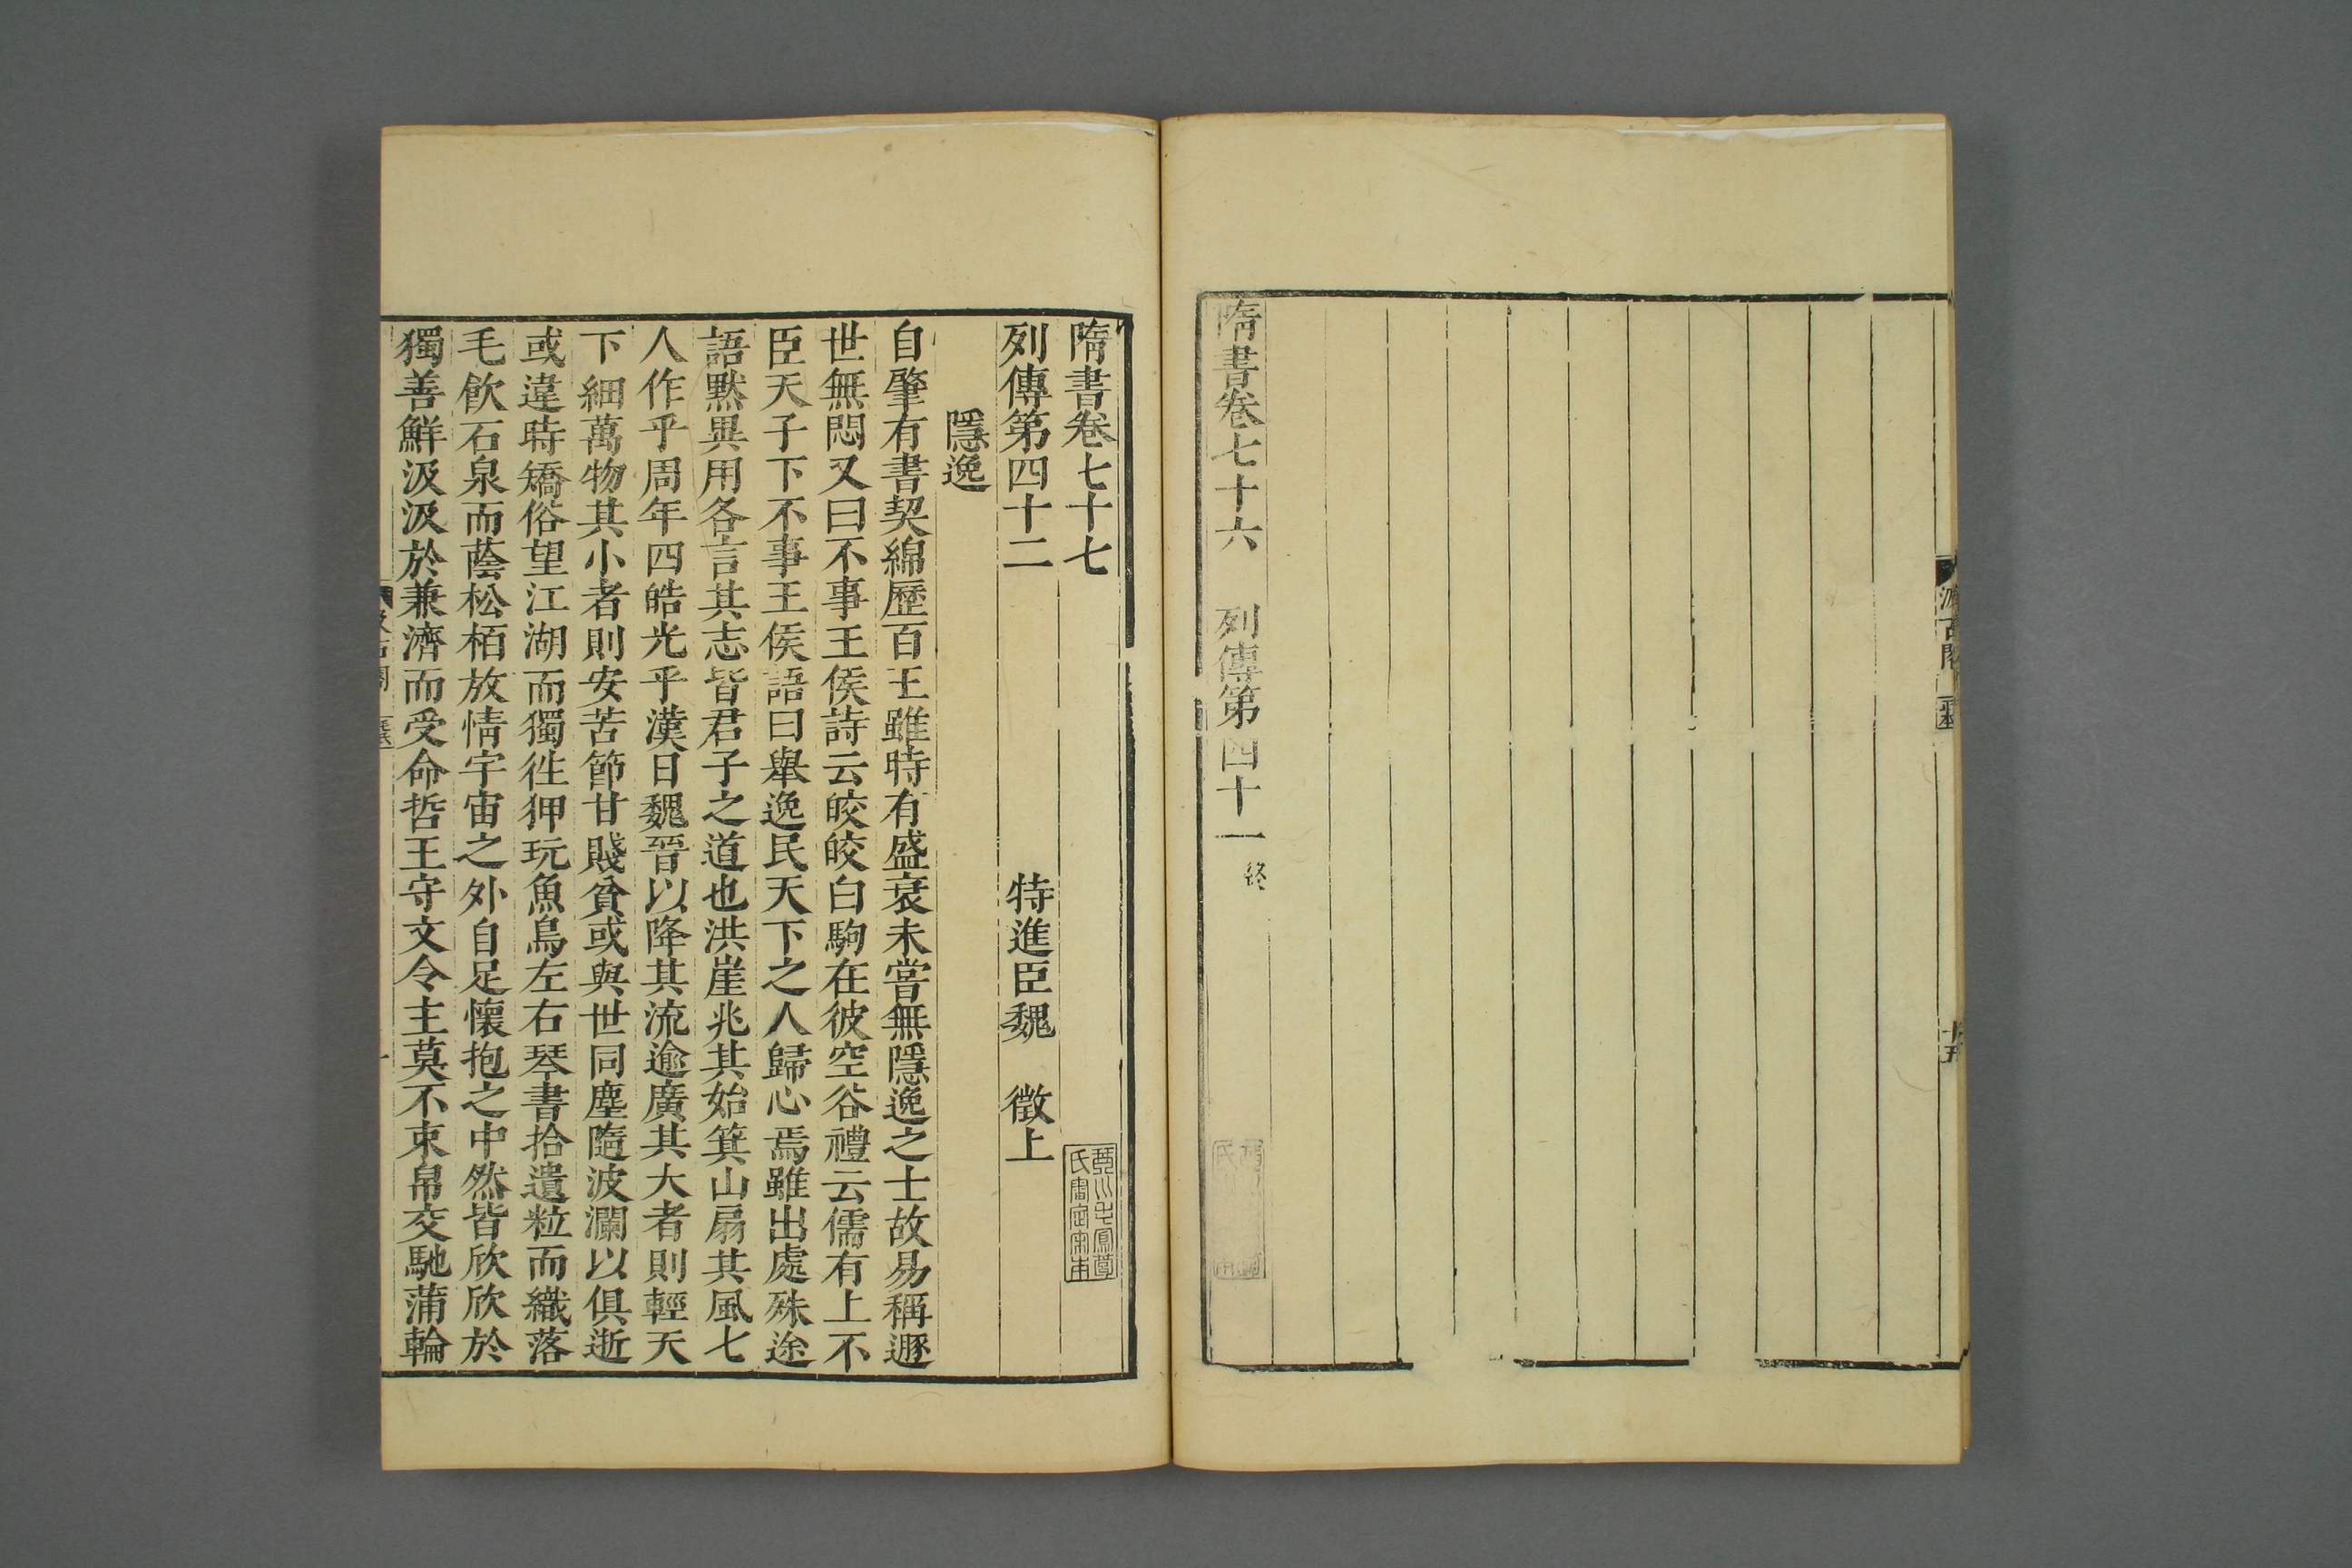 隋書卷七十六　列傳第四十一終
隋書卷七十七
列傳第四十二　特進臣魏　徵上
隱逸
自肇有書契綿歷百王雖時有盛衰未嘗無隱逸之士故易稱遯
世無悶又曰不事王侯詩云皎皎白駒在彼空谷禮云儒有上不
臣天子下不事王侯語曰舉逸民天下之人歸心焉雖出處殊途
語默異用各言其志皆君子之道也洪崖兆其始箕山扇其風七
人作乎周年四皓光乎漢日魏晉以降其流逾廣其大者則輕天
下細萬物其小者則安苦節甘賤貧或與世同塵隨波瀾以俱逝
或違時矯俗望江湖而獨徃狎玩魚鳥左右琴書拾遺粒而織落
毛飲石泉而蔭松栢放情宇宙之外自足懷抱之中然皆欣欣於
獨善鮮汲汲於兼濟而受命哲王守文令主莫不束帛交馳蒲輪